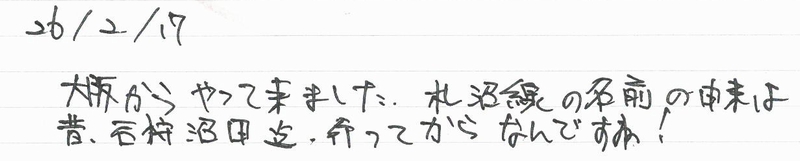 26/2/17
大阪からやって来ました. 札沼線の名前の由来は
昔、石狩沼田迄、行ってからなんですね!